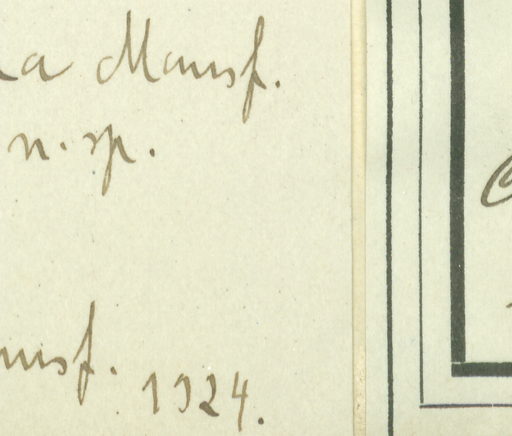 a Mansf.
n. sp.
ansf. 1924.